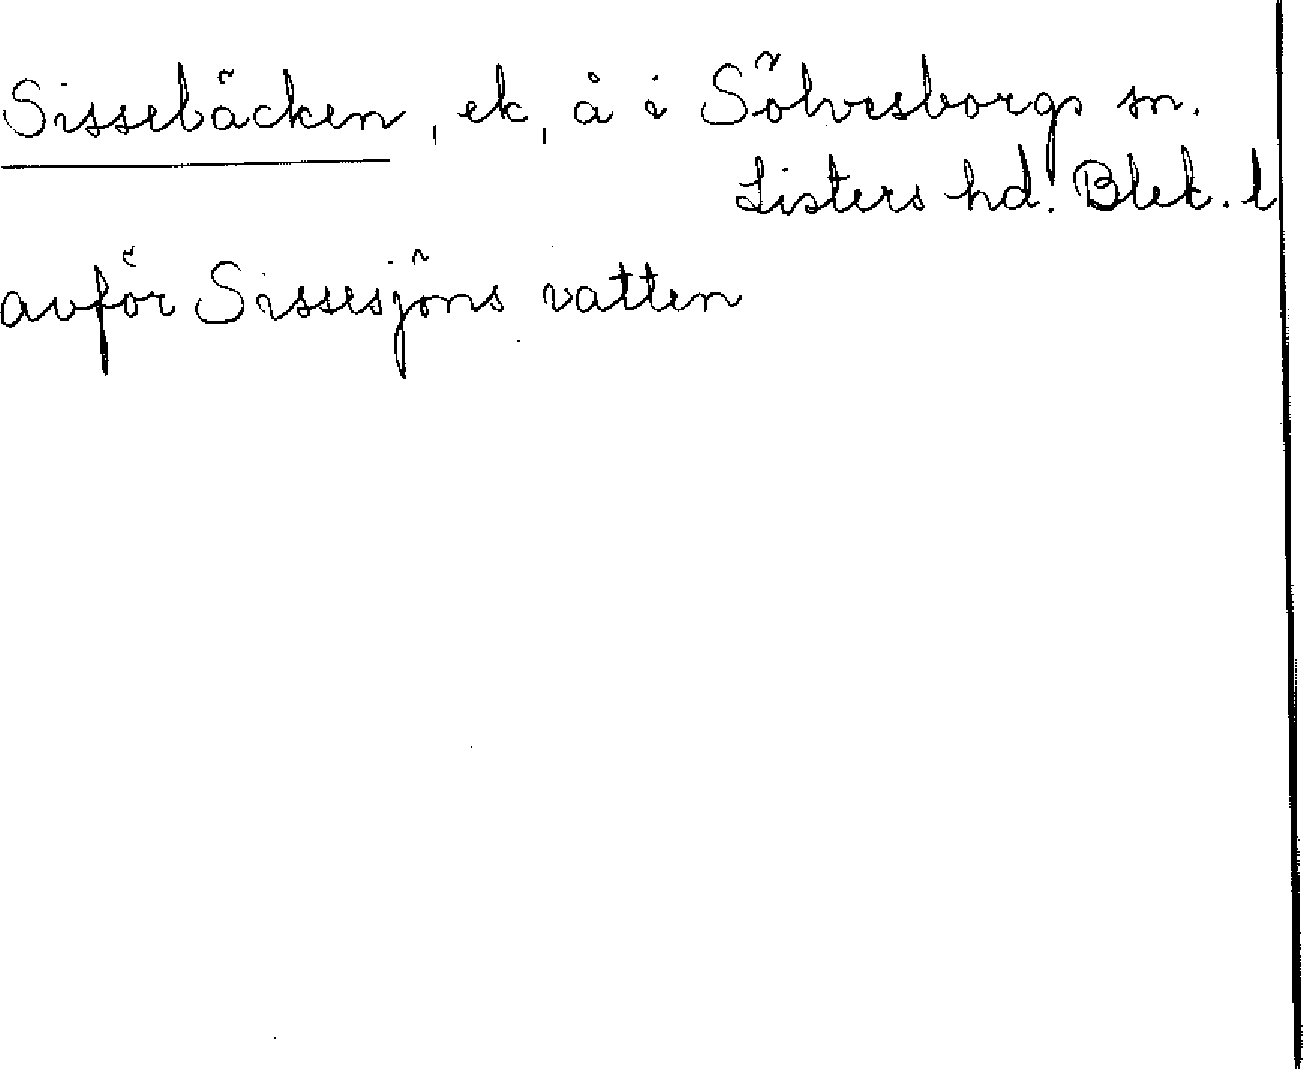 Sissebäcken, ek, å i Sölvesborgs sn.
Listers hd. Blek. l
avför Sissesjöns vatten